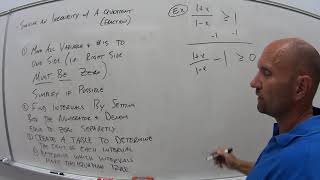 - Solving An Inequality of A Quotient
(Fraction)
① Move All Variable & #'s to
One Side (i.e. Right Side
Must Be Zero)
Simplify if Possible
② Find Intervals By Setting
Both the Numerator & Denom
Equal to Zero Separately
③ Create A Table to Determine
the Sign of Each Interval
④ Determine Which Intervals
Make the Equation True
Ex) 1+x / 1-x ≥ 1
-1 -1
1+x / 1-x - 1 ≥ 0